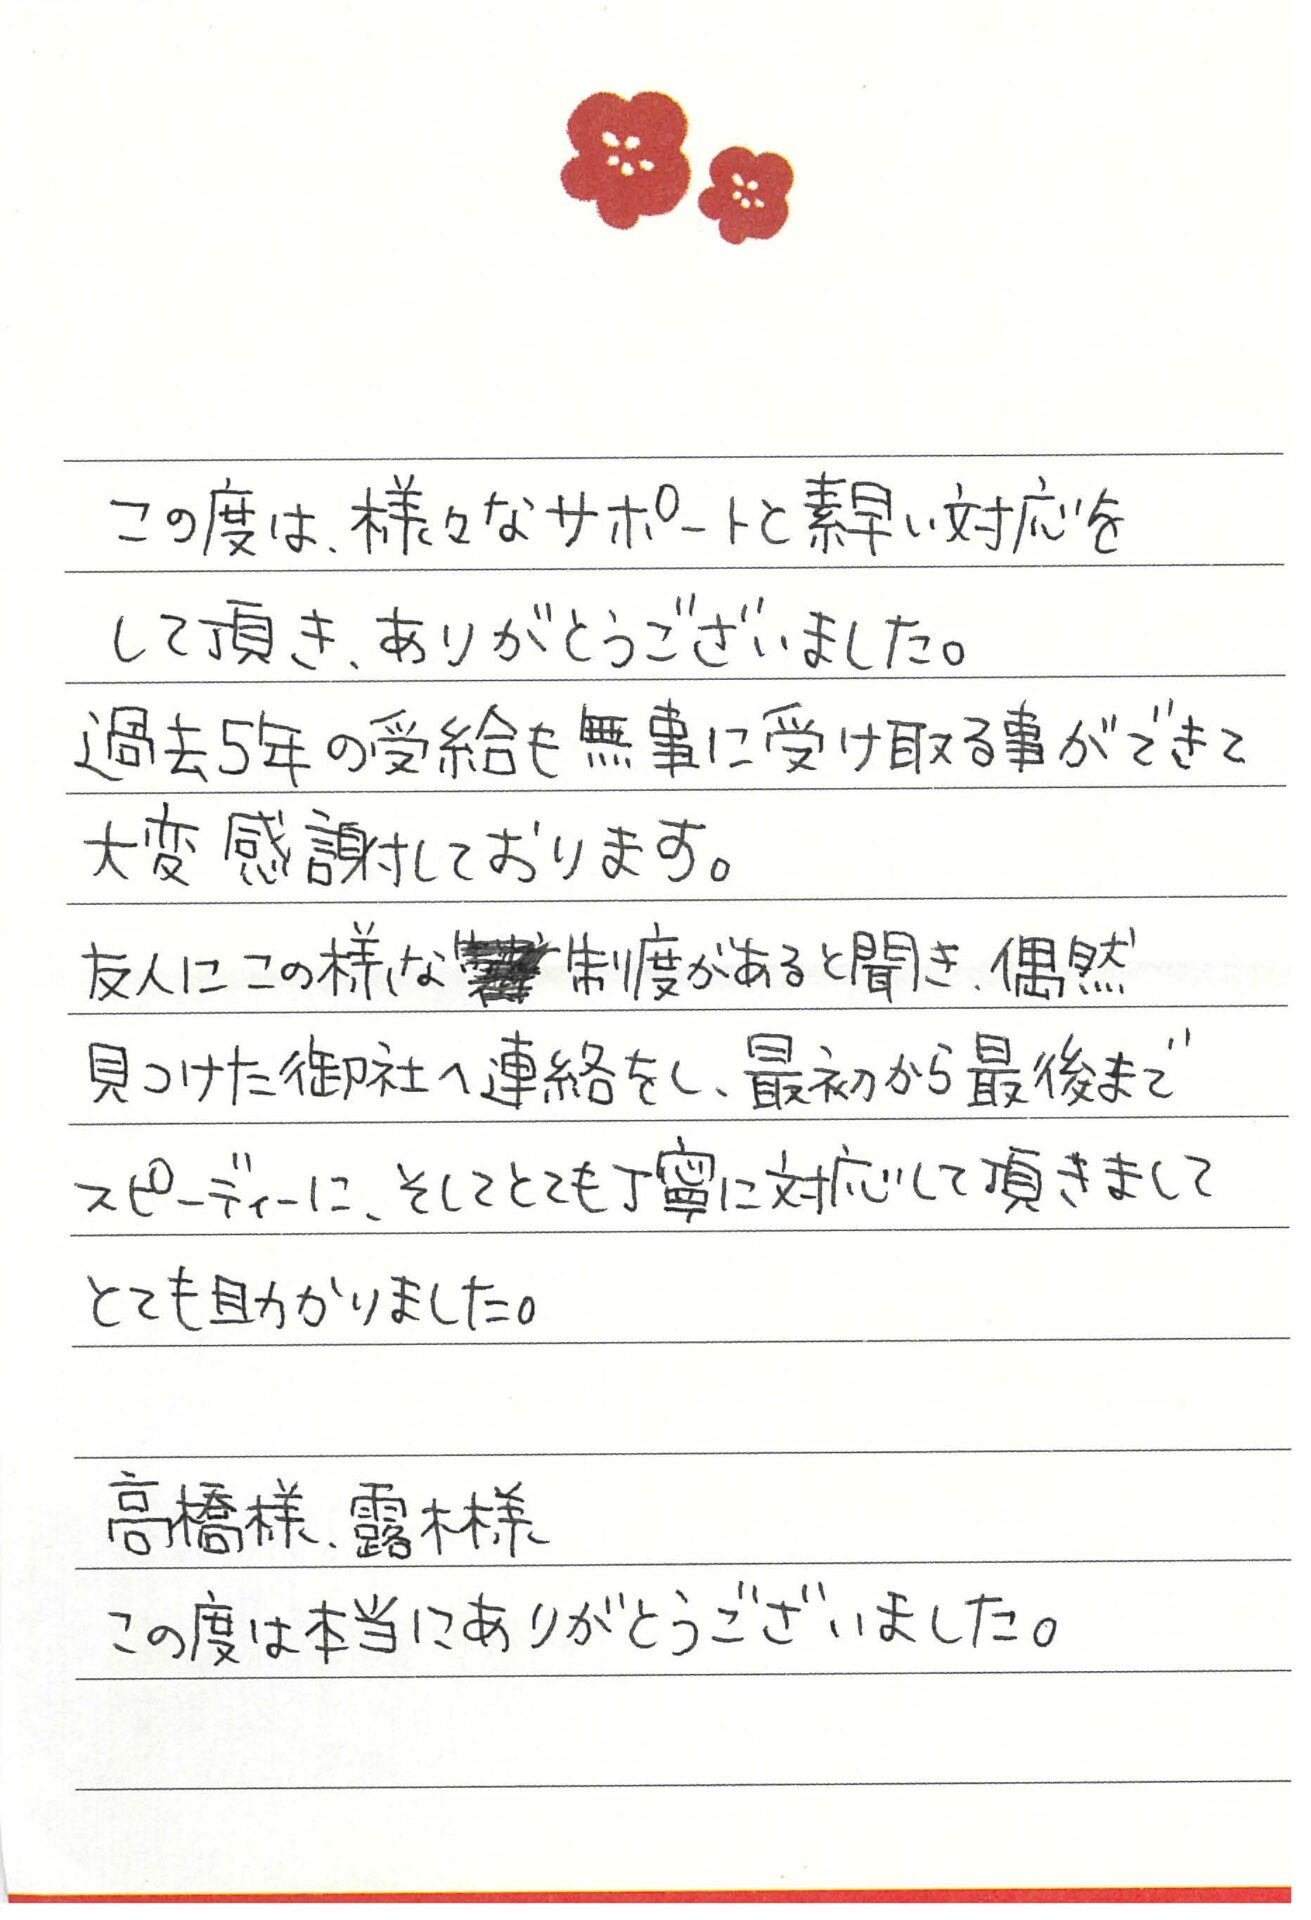 この度は、様々なサポートと素早い対応を
して頂き、ありがとうございました。
過去5年の受給も無事に受け取る事ができて
大変感謝しております。
友人にこの様な制度があると聞き、偶然
見つけた御社へ連絡をし、最初から最後まで
スピーディーに、そしてとても丁寧に対応して頂きまして
とても助かりました。
高橋様、露木様
この度は本当にありがとうございました。